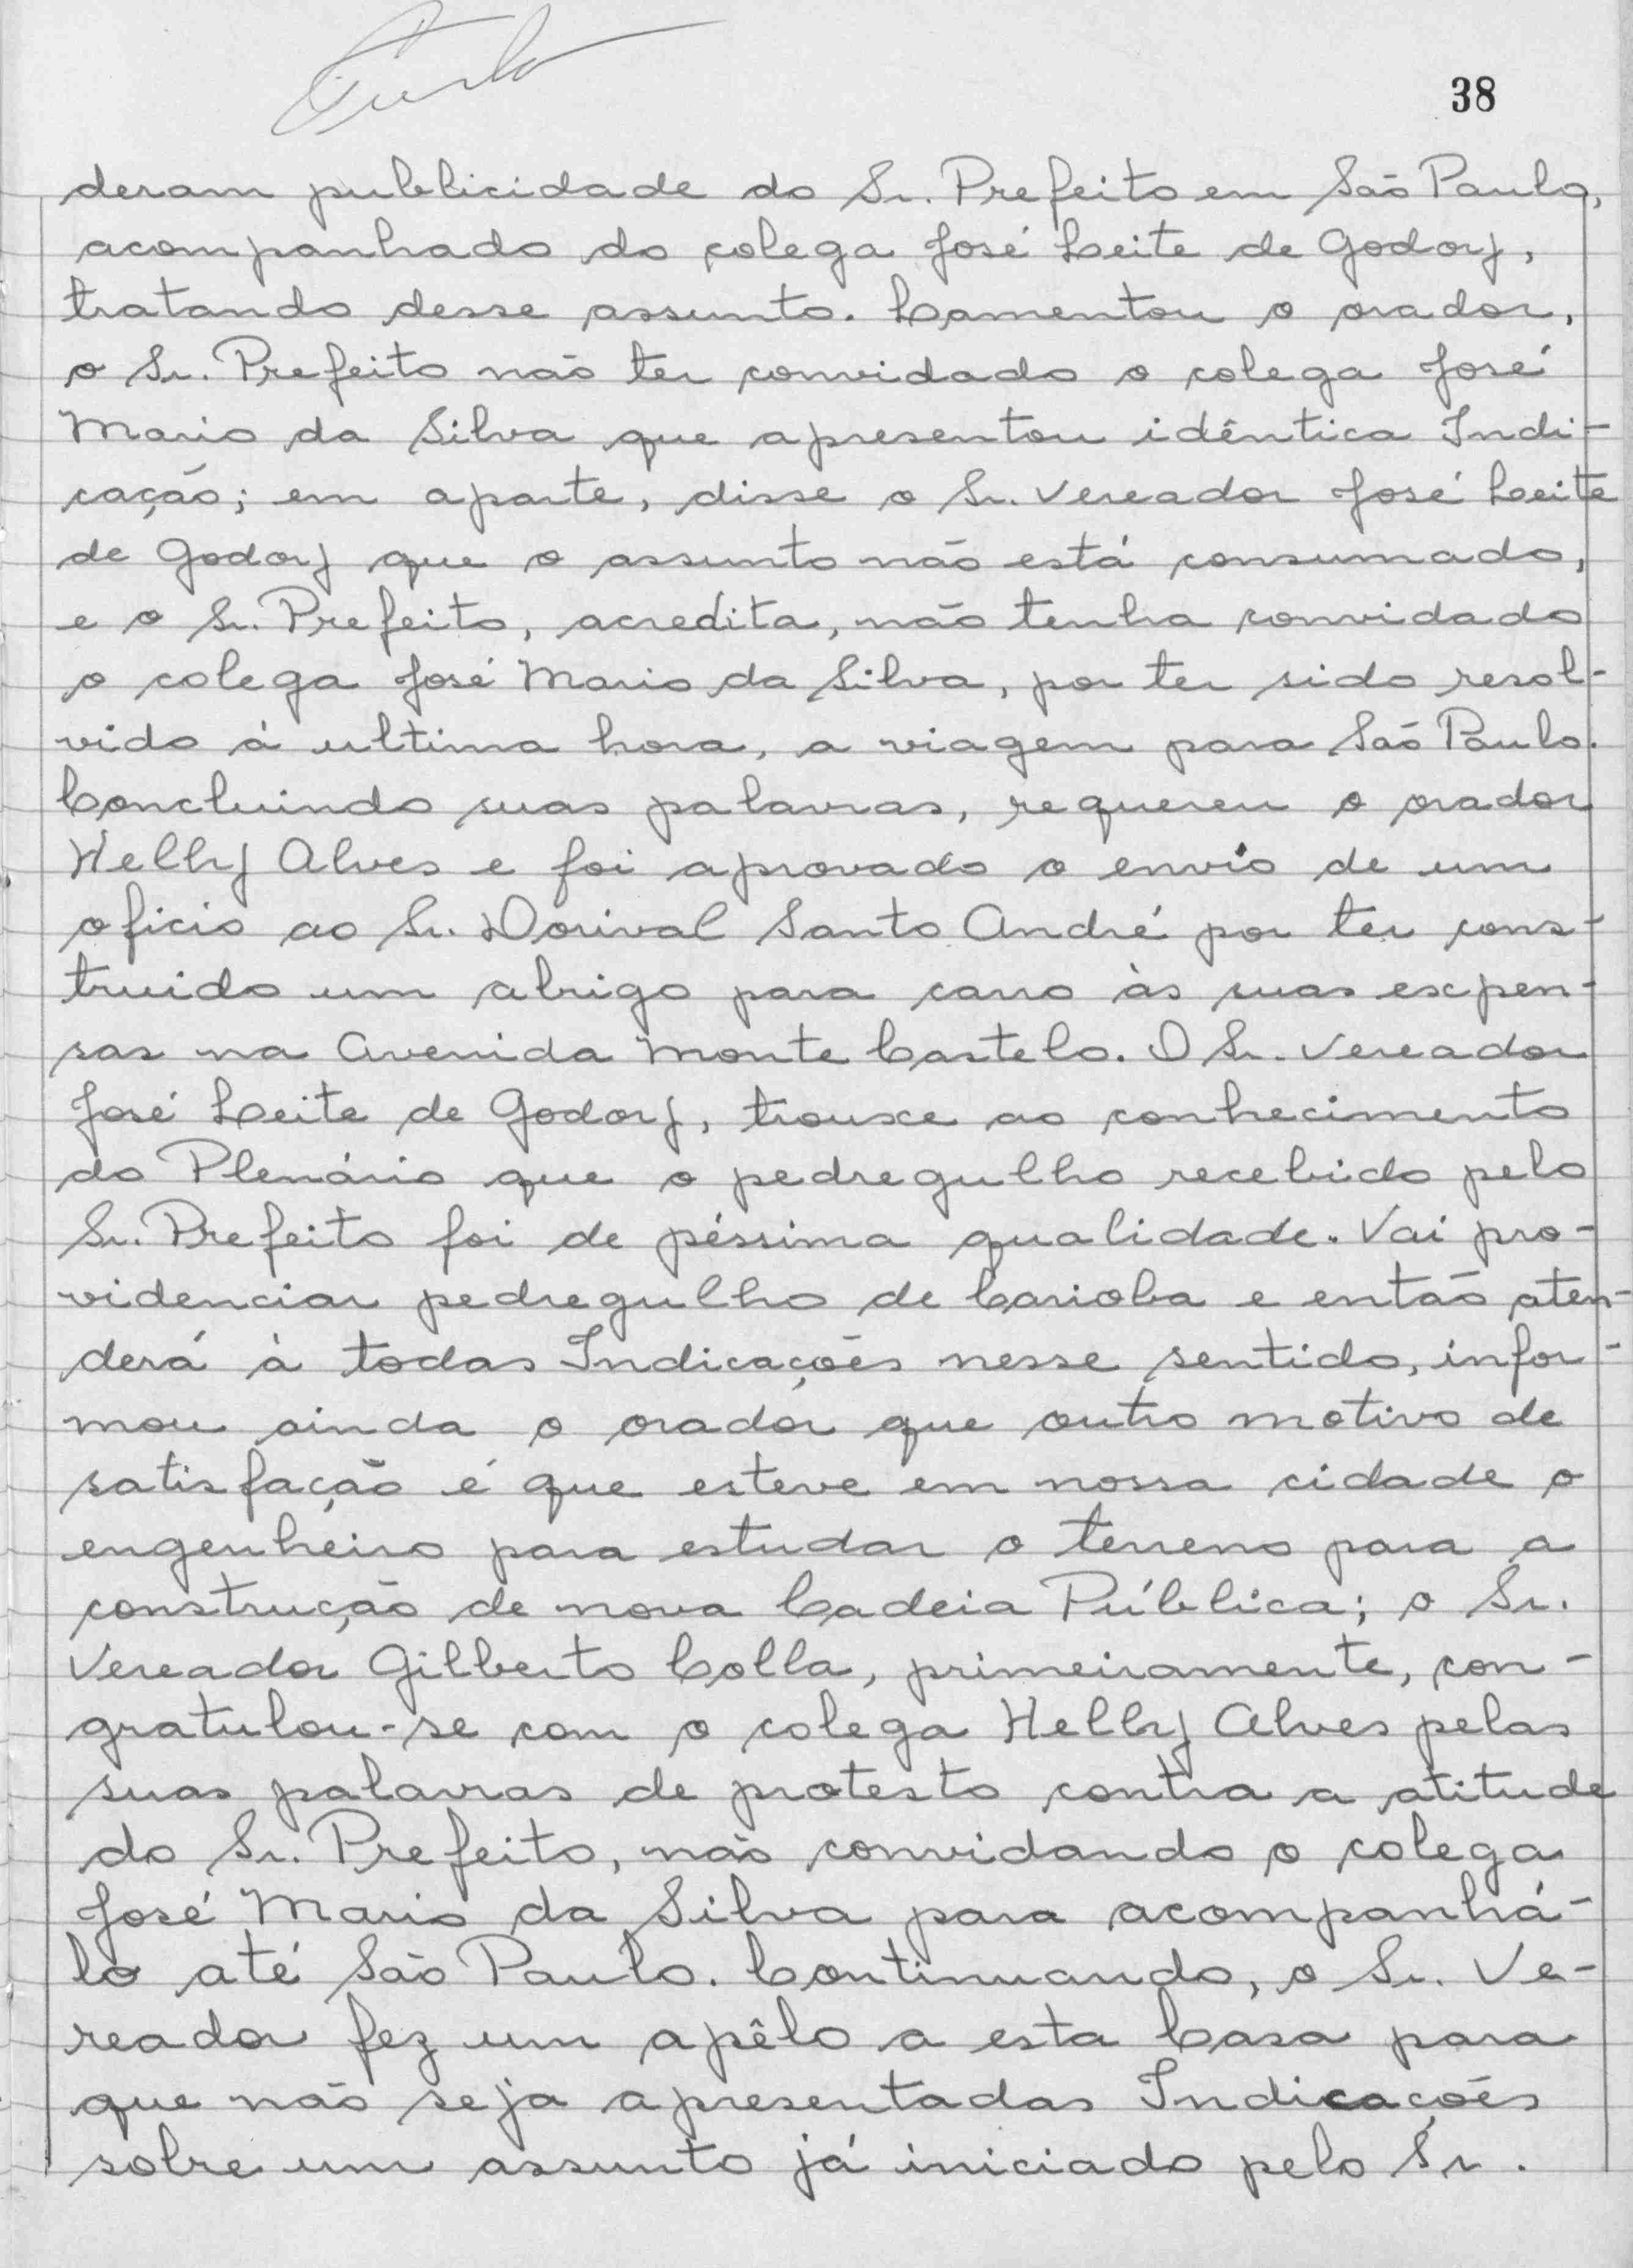 38
deram publicidade do Sr. Prefeito em São Paulo,
acompanhado do colega José Leite de Godoy,
tratando desse assunto. Lamentou o orador,
o Sr. Prefeito não ter convidado o colega José
Mario da Silva que apresentou idêntica Indi-
cação; em aparte, disse o Sr. Vereador José Leite
de Godoy que o assunto não está consumado,
e o Sr. Prefeito, acredita, não tenha convidado
o colega José Mario da Silva, por ter sido resol-
vido à ultima hora, a viagem para São Paulo.
Concluindo suas palavras, requereu o orador
Helly Alves e foi aprovado o envio de um
oficio ao Sr. Dorival Santo André por ter cons-
truido um abrigo para carro às suas expen-
sas na Avenida Monte Castelo. O Sr. Vereador
José Leite de Godoy, trouxe ao conhecimento
do Plenário que o pedregulho recebido pelo
Sr. Prefeito foi de péssima qualidade. Vai pro-
videnciar pedregulho de Carioba e então aten-
derá à todas Indicações nesse sentido, infor-
mou ainda o orador que outro motivo de
satisfação é que esteve em nossa cidade o
engenheiro para estudar o terreno para a
construção de nova Cadeia Pública; o Sr.
Vereador Gilberto Colla, primeiramente, con-
gratulou-se com o colega Helly Alves pelas
suas palavras de protesto contra a atitude
do Sr. Prefeito, não convidando o colega
José Mario da Silva para acompanhá-
lo até São Paulo. Continuando, o Sr. Ve-
reador fez um apêlo a esta Casa para
que não seja apresentadas Indicações
sobre um assunto já iniciado pelo Sr.